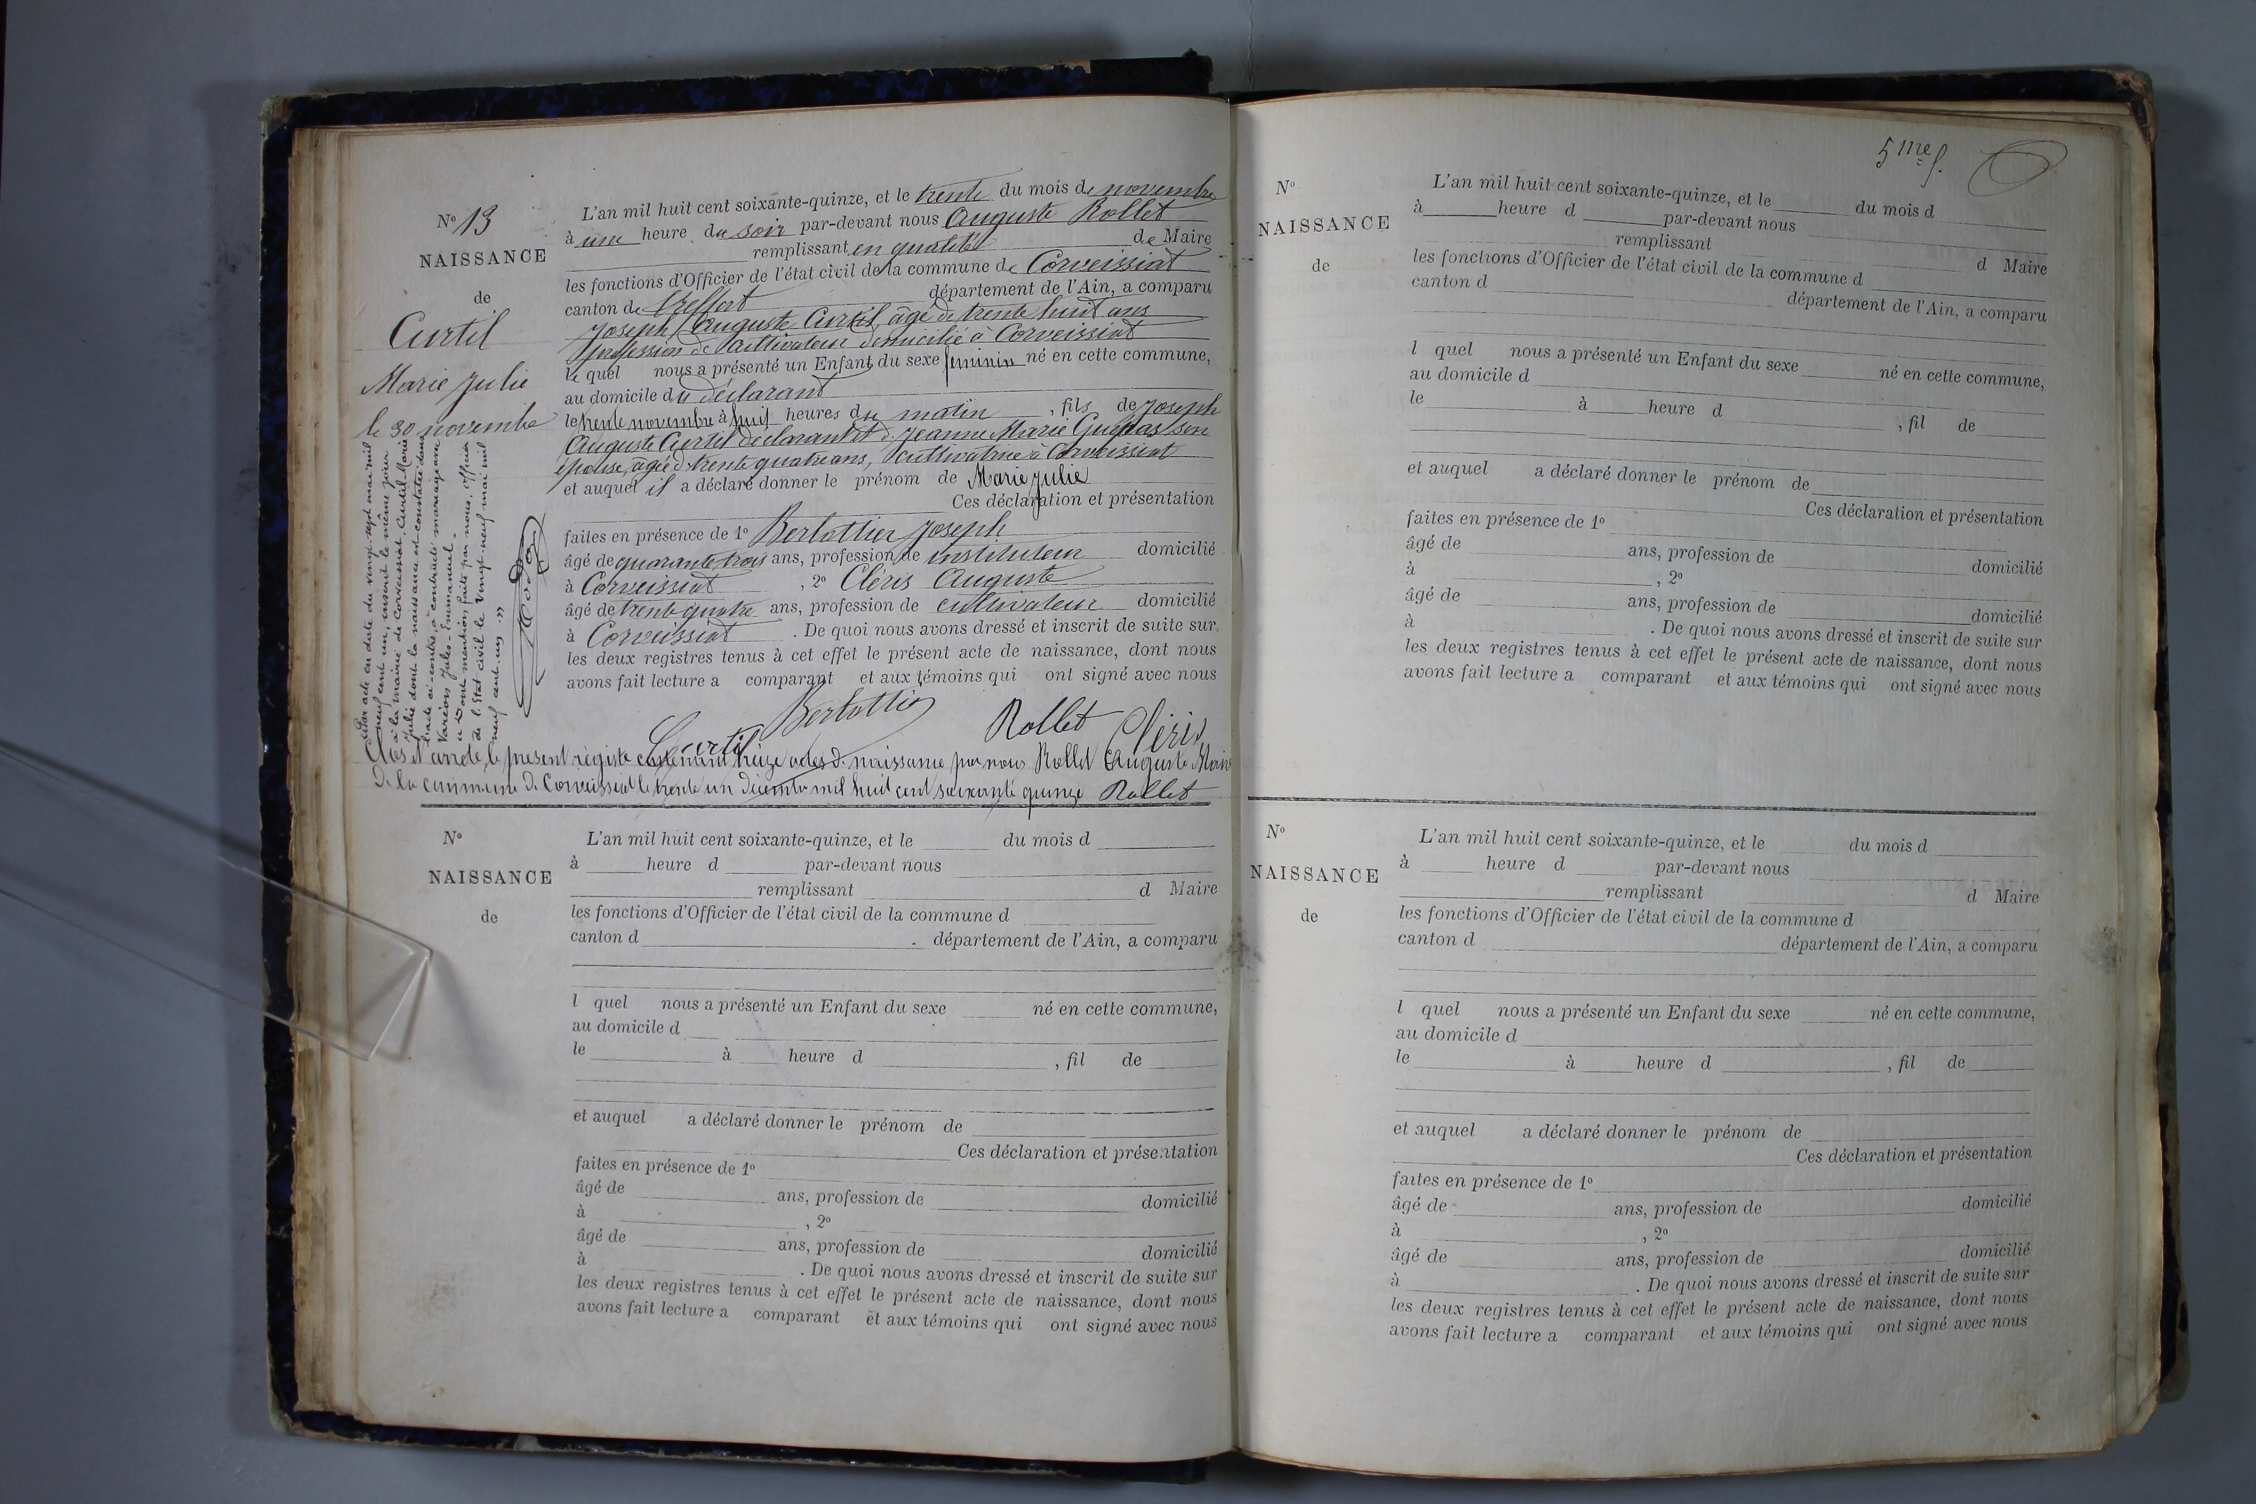 N° 13
NAISSANCE
de
Curtil
Marie Julie
le 30 novembre
Par acte en date du vingt-sept mai mil
neuf cent un, inscrit le même jour
à la mairie de Corveissiat, Curtil Marie
Julie dont la naissance est constatée dans
l'acte ci-contre, a contracté mariage avec
Jules-Emmanuel.
Dont mention faite par nous, officier
de l'Etat civil le vingt-neuf mai mil
neuf cent un ,,
L'an mil huit cent soixante-quinze, et le trente du mois de novembre
à une heure du soir par-devant nous Auguste Rollet
remplissant en qualité de Maire
les fonctions d'Officier de l'état civil de la commune de Corveissiat
canton de Treffort département de l'Ain, a comparu
Joseph Auguste Curtil, âgé de trente huit ans
profession de cultivateur domicilié à Corveissiat
le quel nous a présenté un Enfant du sexe feminin né en cette commune,
au domicile du déclarant
le trente novembre à huit heures du matin , fils de Joseph
Auguste Curtil déclarant et de Jeanne Marie son
épouse, âgée de trente quatre ans, cultivatrice à Corveissiat
et auquel il a déclaré donner le prénom de Marie Julie
Ces déclaration et présentation
faites en présence de 1° Berlottier Joseph
âgé de quarante trois ans, profession de instituteur domicilié
à Corveissiat , 2° Cléris Auguste
âgé de trente quatre ans, profession de cultivateur domicilié
à Corveissiat . De quoi nous avons dressé et inscrit de suite sur
les deux registres tenus à cet effet le présent acte de naissance, dont nous
avons fait lecture a comparant et aux témoins qui ont signé avec nous
Curtil Berlottier Rollet Cléris
Clos et arrêté le présent registre contenant treize actes de naissance par nous Rollet Auguste Maire
de la commune de Corveissiat le trente un décembre mil huit cent soixante quinze Rollet
N°
NAISSANCE
de
L'an mil huit cent soixante-quinze, et le du mois d
à heure d par-devant nous
remplissant d Maire
les fonctions d'Officier de l'état civil de la commune d
canton d département de l'Ain, a comparu
l quel nous a présenté un Enfant du sexe né en cette commune,
au domicile d
le à heure d , fil de
et auquel a déclaré donner le prénom de
Ces déclaration et présentation
faites en présence de 1°
âgé de ans, profession de domicilié
à , 2°
âgé de ans, profession de domicilié
à . De quoi nous avons dressé et inscrit de suite sur
les deux registres tenus à cet effet le présent acte de naissance, dont nous
avons fait lecture a comparant et aux témoins qui ont signé avec nous
5me f.
N°
NAISSANCE
de
L'an mil huit cent soixante-quinze, et le du mois d
à heure d par-devant nous
remplissant d Maire
les fonctions d'Officier de l'état civil de la commune d
canton d département de l'Ain, a comparu
l quel nous a présenté un Enfant du sexe né en cette commune,
au domicile d
le à heure d , fil de
et auquel a déclaré donner le prénom de
Ces déclaration et présentation
faites en présence de 1°
âgé de ans, profession de domicilié
à , 2°
âgé de ans, profession de domicilié
à . De quoi nous avons dressé et inscrit de suite sur
les deux registres tenus à cet effet le présent acte de naissance, dont nous
avons fait lecture a comparant et aux témoins qui ont signé avec nous
N°
NAISSANCE
de
L'an mil huit cent soixante-quinze, et le du mois d
à heure d par-devant nous
remplissant d Maire
les fonctions d'Officier de l'état civil de la commune d
canton d département de l'Ain, a comparu
l quel nous a présenté un Enfant du sexe né en cette commune,
au domicile d
le à heure d , fil de
et auquel a déclaré donner le prénom de
Ces déclaration et présentation
faites en présence de 1°
âgé de ans, profession de domicilié
à , 2°
âgé de ans, profession de domicilié
à . De quoi nous avons dressé et inscrit de suite sur
les deux registres tenus à cet effet le présent acte de naissance, dont nous
avons fait lecture a comparant et aux témoins qui ont signé avec nous